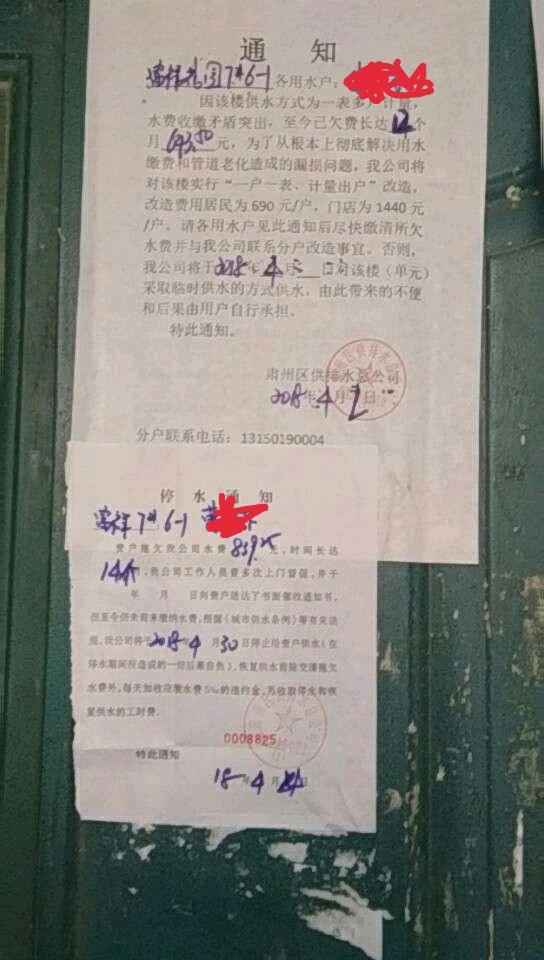 通 知
7#6-1 各用水户：
因该楼供水方式为一表多户计量，
水费收缴矛盾突出，至今已欠费长达12个
月 元，为了从根本上彻底解决用水
缴费和管道老化造成的漏损问题，我公司将
对该楼实行“一户一表、计量出户”改造，
改造费用居民为 690 元/户，门店为 1440 元
/户。请各用水户见此通知后尽快缴清所欠
水费并与我公司联系分户改造事宜。否则，
我公司将于2018年4月 日对该楼（单元）
采取临时供水的方式供水，由此带来的不便
和后果由用户自行承担。
特此通知。
肃州区供排水总公司
2018年4月2日
分户联系电话：13150190004
停 水 通 知
7#6-1
贵户拖欠我公司水费859.25元，时间长达
14个，我公司工作人员曾多次上门督促，并于
年 月 日向贵户送达了书面催收通知书，
但至今仍未前来缴纳水费，根据《城市供水条例》等有关法
规，我公司将于2018年4月30日停止给贵户供水（在
停水期间所造成的一切后果自负），恢复供水前除交清拖欠
水费外，每天加收应缴水费5‰的违约金，另收取停水和恢
复供水的工时费。
0008825
特此通知
18年4月 日